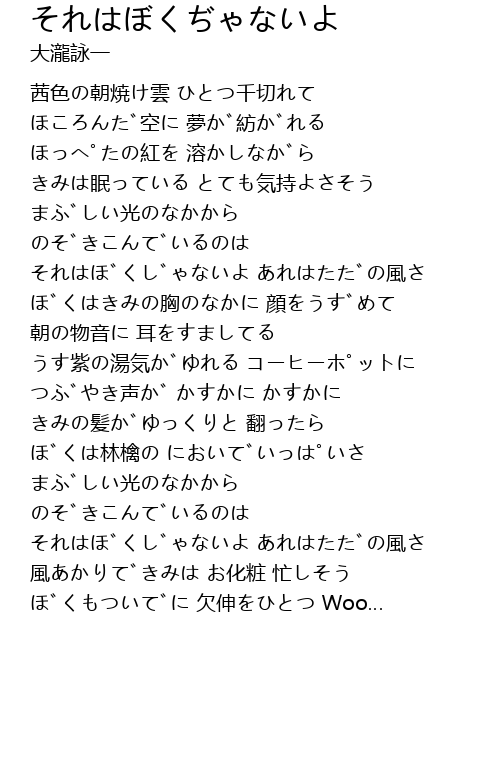 それはぼくぢゃないよ
大瀧詠一
茜色の朝焼け雲 ひとつ千切れて
ほころんだ空に 夢が紡がれる
ほっぺたの紅を 溶かしながら
きみは眠っている とても気持よさそう
まぶしい光のなかから
のぞきこんでいるのは
それはぼくじゃないよ あれはただの風さ
ぼくはきみの胸のなかに 顔をうずめて
朝の物音に 耳をすましてる
うす紫の湯気がゆれる コーヒーポットに
つぶやき声が かすかに かすかに
きみの髪がゆっくりと 翻ったら
ぼくは林檎の においでいっぱいさ
まぶしい光のなかから
のぞきこんでいるのは
それはぼくじゃないよ あれはただの風さ
風あかりできみは お化粧 忙しそう
ぼくもついでに 欠伸をひとつ Woo...